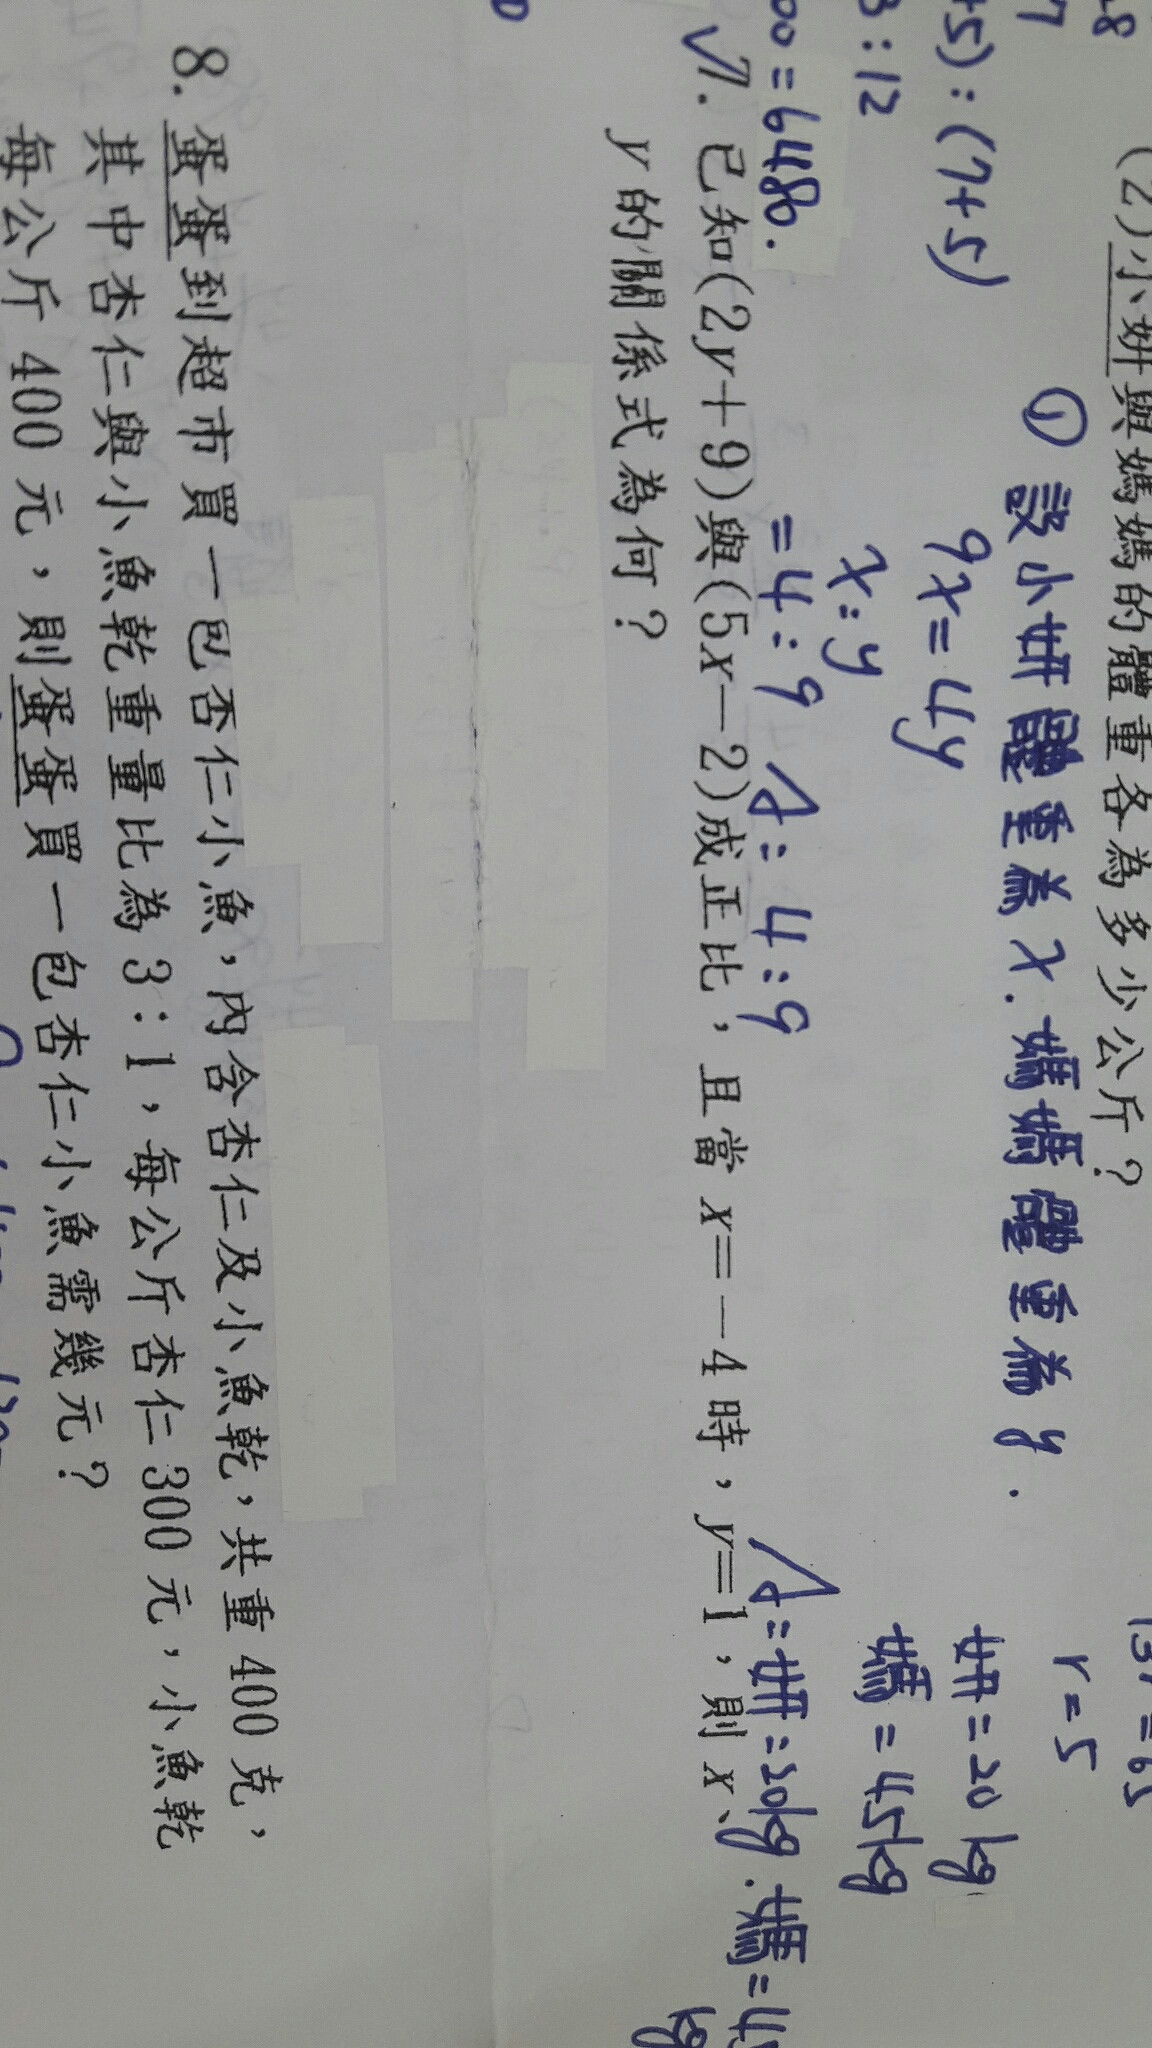 28
(2)小妍與媽媽的體重各為多少公斤?
+5):(7+5)
① 設小妍體重為x.媽媽體重為y.
r=5
3:12
9x=4y
妍=20kg
x:y
媽=45kg
00=6480.
=4:9 A:4:9
A:妍:20kg.媽=45
kg
7. 已知(2y+9)與(5x-2)成正比,且當x=-4時,y=1,則x、
y的關係式為何?
8. 蛋蛋到超市買一包杏仁小魚,內含杏仁及小魚乾,共重400克,
其中杏仁與小魚乾重量比為3:1,每公斤杏仁300元,小魚乾
每公斤400元,則蛋蛋買一包杏仁小魚需幾元?